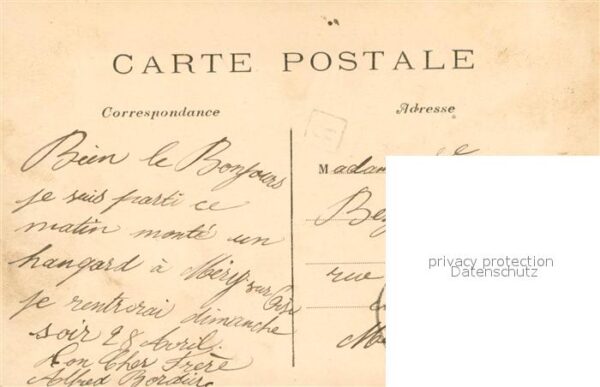 CARTE POSTALE
Correspondance
Adresse
Bien le Bonjours
je suis parti ce
matin monté un
hangard à Méry sur Oise
je rentrerai dimanche
soir 28 Avril.
Ton Cher Frère
Alfred
Madam
rue
privacy protection
Datenschutz